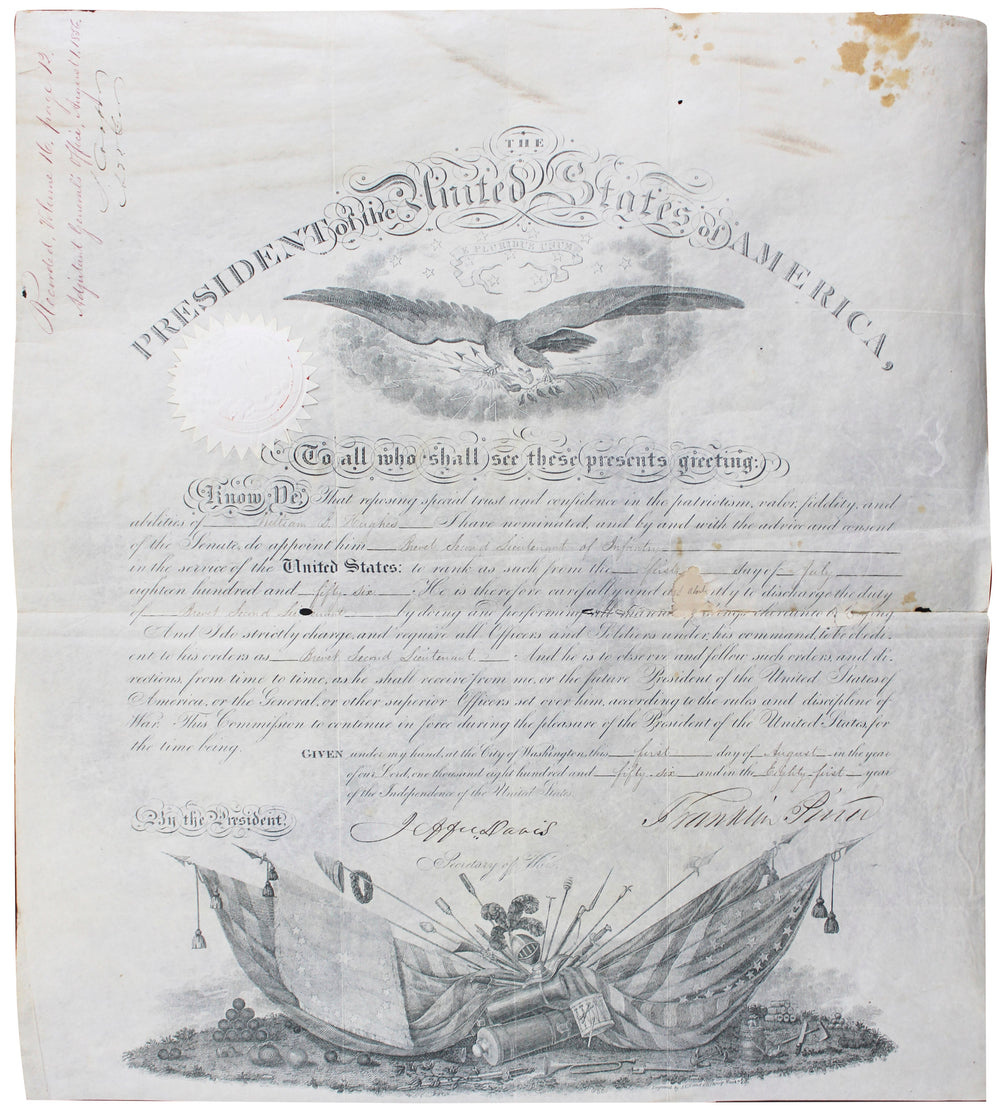 Recorded, Volume 16, page 13
Adjutant General's Office, August 1, 1856.
S. Cooper
THE
PRESIDENT of the United States of AMERICA,
E PLURIBUS UNUM
To all who shall see these presents greeting:
Know Ye, That reposing special trust and confidence in the patriotism, valor, fidelity, and
abilities of William B. Hughes I have nominated, and by and with the advice and consent
of the Senate, do appoint him Brevet Second Lieutenant of Infantry
in the service of the United States: to rank as such from the first day of July
eighteen hundred and fifty six He is therefore carefully and diligently to discharge the duty
of Brevet Second Lieutenant by doing and performing all manner of things thereunto belonging
And I do strictly charge, and require all Officers and Soldiers under his command, to be obedi-
ent to his orders as Brevet Second Lieutenant And he is to observe and follow such orders, and di-
rections, from time to time, as he shall receive from me, or the future President of the United States of
America, or the General, or other superior Officers set over him, according to the rules and discipline of
War. This Commission to continue in force during the pleasure of the President of the United States, for
the time being.
GIVEN under my hand, at the City of Washington, this first day of August in the year
of our Lord, one thousand eight hundred and fifty six and in the Eighty-first year
of the Independence of the United States.
By the President
Jeffer Davis
Franklin Pierce
Secretary of War.